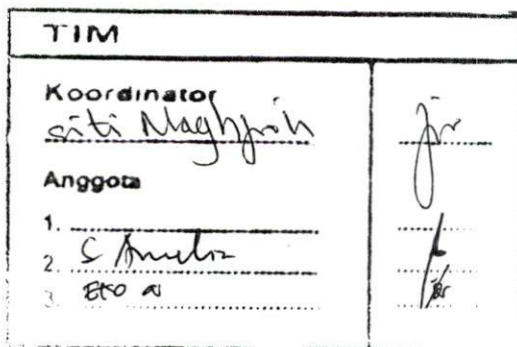 TIM
Koordinator
Siti Maghfiroh
Anggota
1.
2. S Amelia
3. Eko a